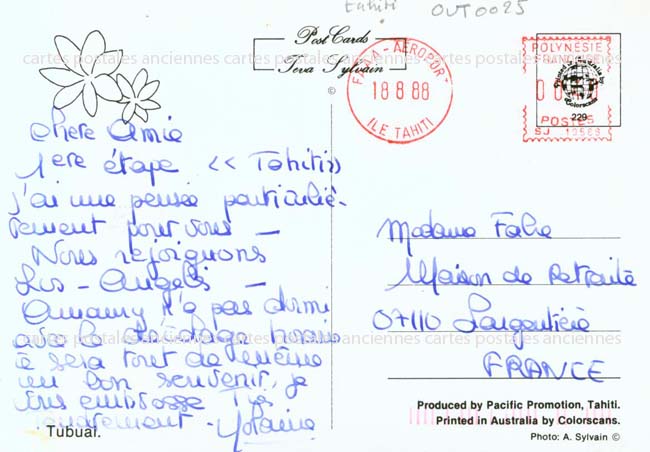 tahiti OUT0025
Post Cards
Teva Sylvain
©
FAAA - AEROPORT
18 8 88
ILE TAHITI
POLYNÉSIE
FRANÇAISE
POSTES
SJ
Colorscans
229
cartes postales anciennes cartes postales anciennes cartes postales anciennes
chere Amie
1ere étape << Tahiti >>
j'ai une pensée particuliè-
rement pour vous —
Nous rejoignons
Los - Angeles —
Amaury n'a pas dormi
avec le décalage horaire
ce sera tout de même
un bon souvenir, je
vous embrasse Très
tendrement -
Madame
Maison de Retraite
07110 Largentière
FRANCE
cartes postales anciennes cartes postales anciennes cartes postales anciennes
Tubuai.
Produced by Pacific Promotion, Tahiti.
Printed in Australia by Colorscans.
Photo: A. Sylvain ©